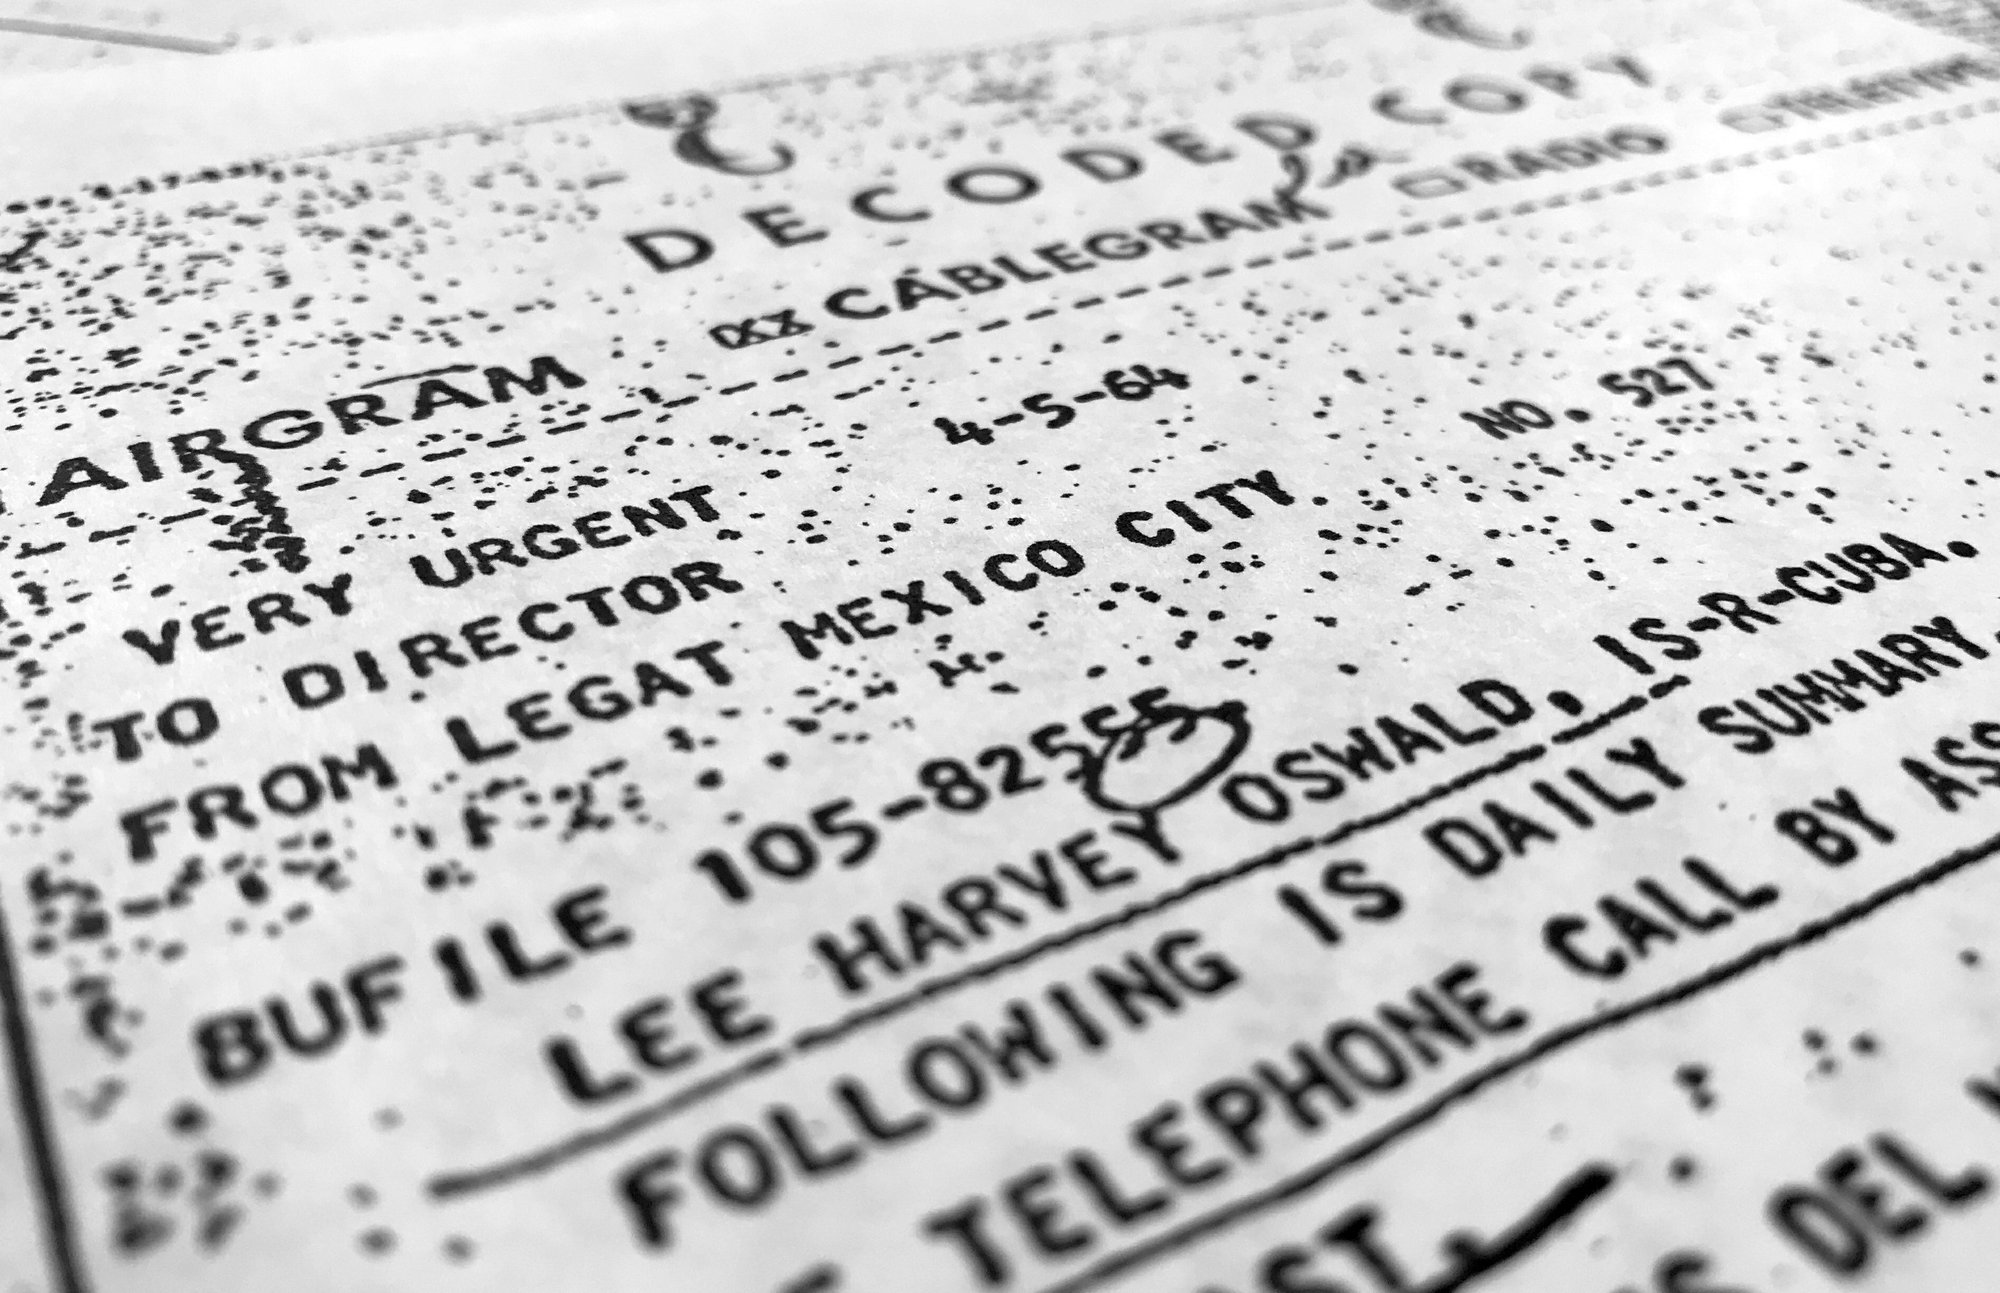 DECODED COPY
AIRGRAM XX CABLEGRAM RADIO
VERY URGENT 4-5-64 NO. 527
TO DIRECTOR
FROM LEGAT MEXICO CITY
BUFILE 105-82555
LEE HARVEY OSWALD, IS-R-CUBA.
FOLLOWING IS DAILY SUMMARY.
TELEPHONE CALL BY
DEL